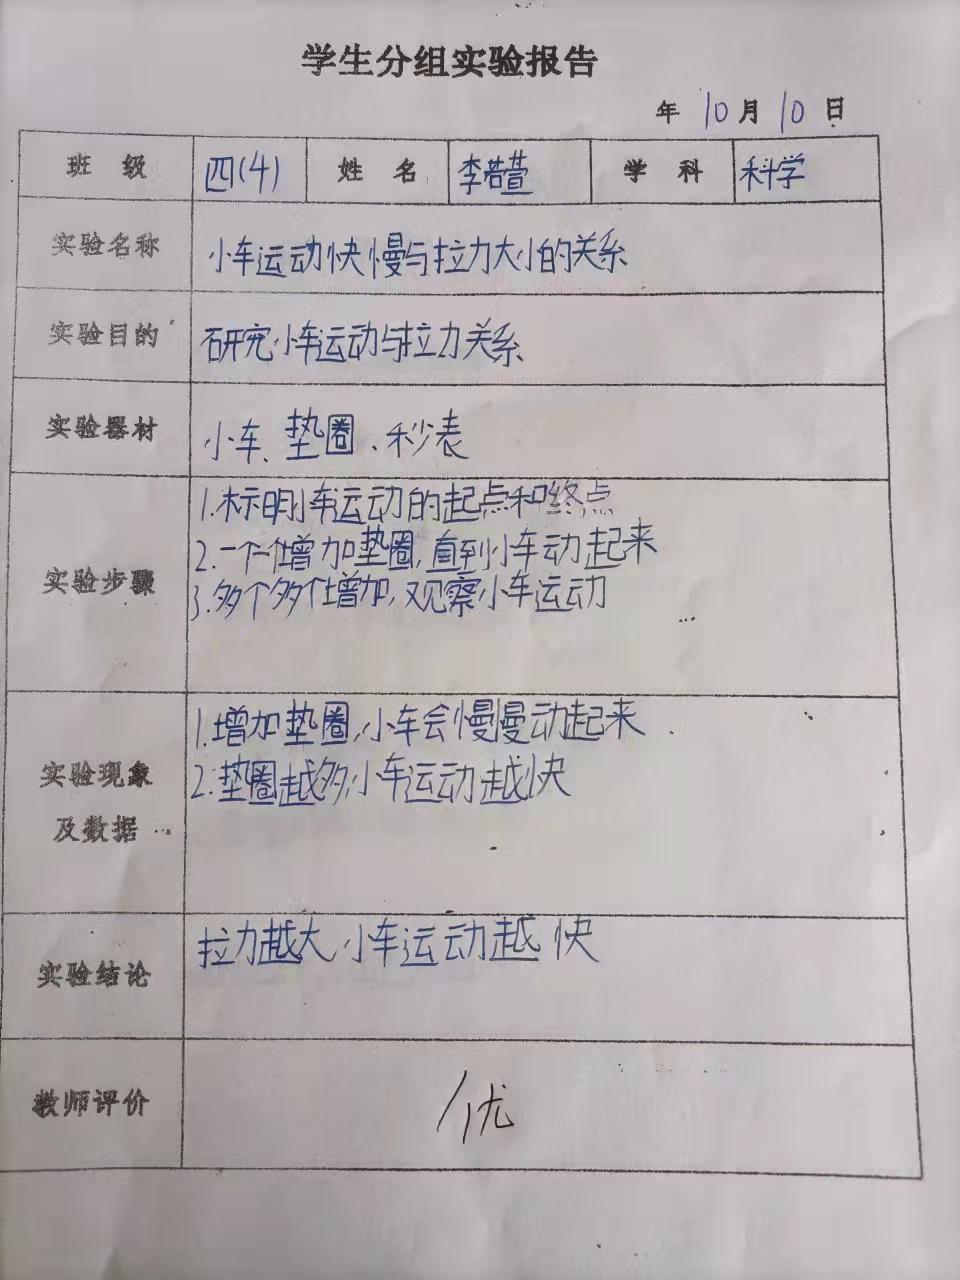 学生分组实验报告
年 10月 10日
班 级 四(4) 姓 名 李若萱 学 科 科学
实验名称 小车运动快慢与拉力大小的关系
实验目的 研究小车运动与拉力关系
实验器材 小车、垫圈、秒表
实验步骤
1.标明小车运动的起点和终点
2.一个一个增加垫圈,直到小车动起来
3.多个多个增加,观察小车运动
实验现象
及数据
1.增加垫圈,小车会慢慢动起来
2.垫圈越多,小车运动越快
实验结论 拉力越大,小车运动越快
教师评价 优